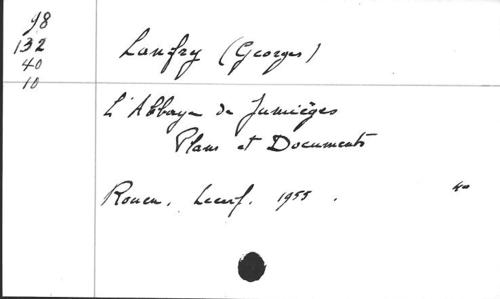 98
132
40
10
Lanfry (Georges)
L'Abbaye de Jumièges
Plans et Documents
Rouen, Lecerf. 1955.
4º